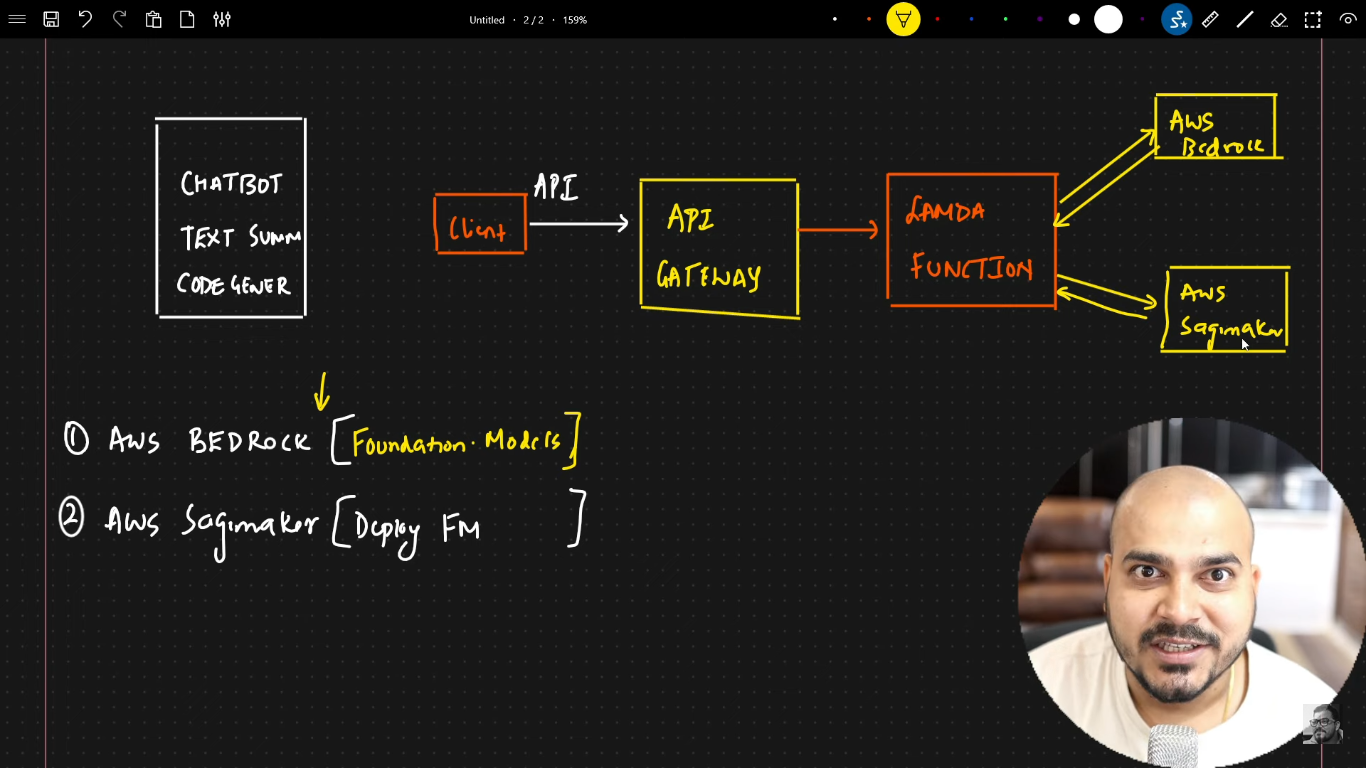 Untitled · 2 / 2 · 159%
CHATBOT
TEXT SUMM
CODE GENER
Client
API
API
GATEWAY
LAMDA
FUNCTION
AWS
Bedrock
AWS
Sagimaker
① AWS BEDROCK [Foundation Models]
② AWS Sagimaker [Deploy FM ]